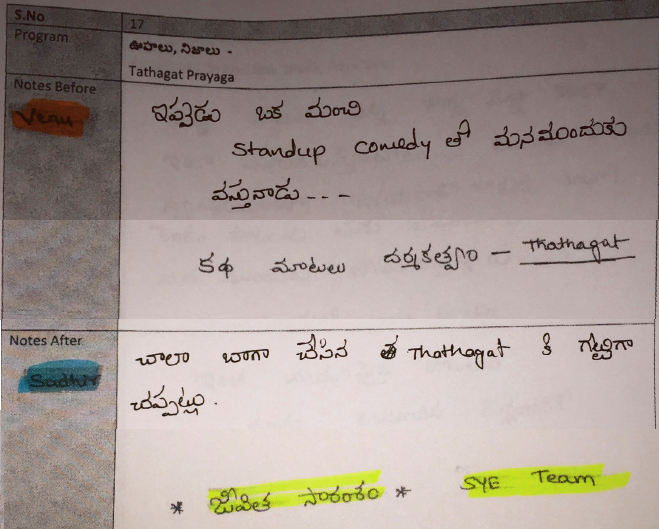 S.No 17
Program ఊహలు, నిజాలు -
Tathagat Prayaga
Notes Before
Venu
ఇప్పుడు ఒక మంచి
Standup comedy తో మనముందుకు
వస్తునాడు - - -
కథ మాటలు దర్శకత్వం - Thathagat
Notes After
Sudhir
చాలా బాగా చేసిన Thathagat కి గట్టిగా
చప్పట్లు.
* జీవిత సారంశం * SYE Team